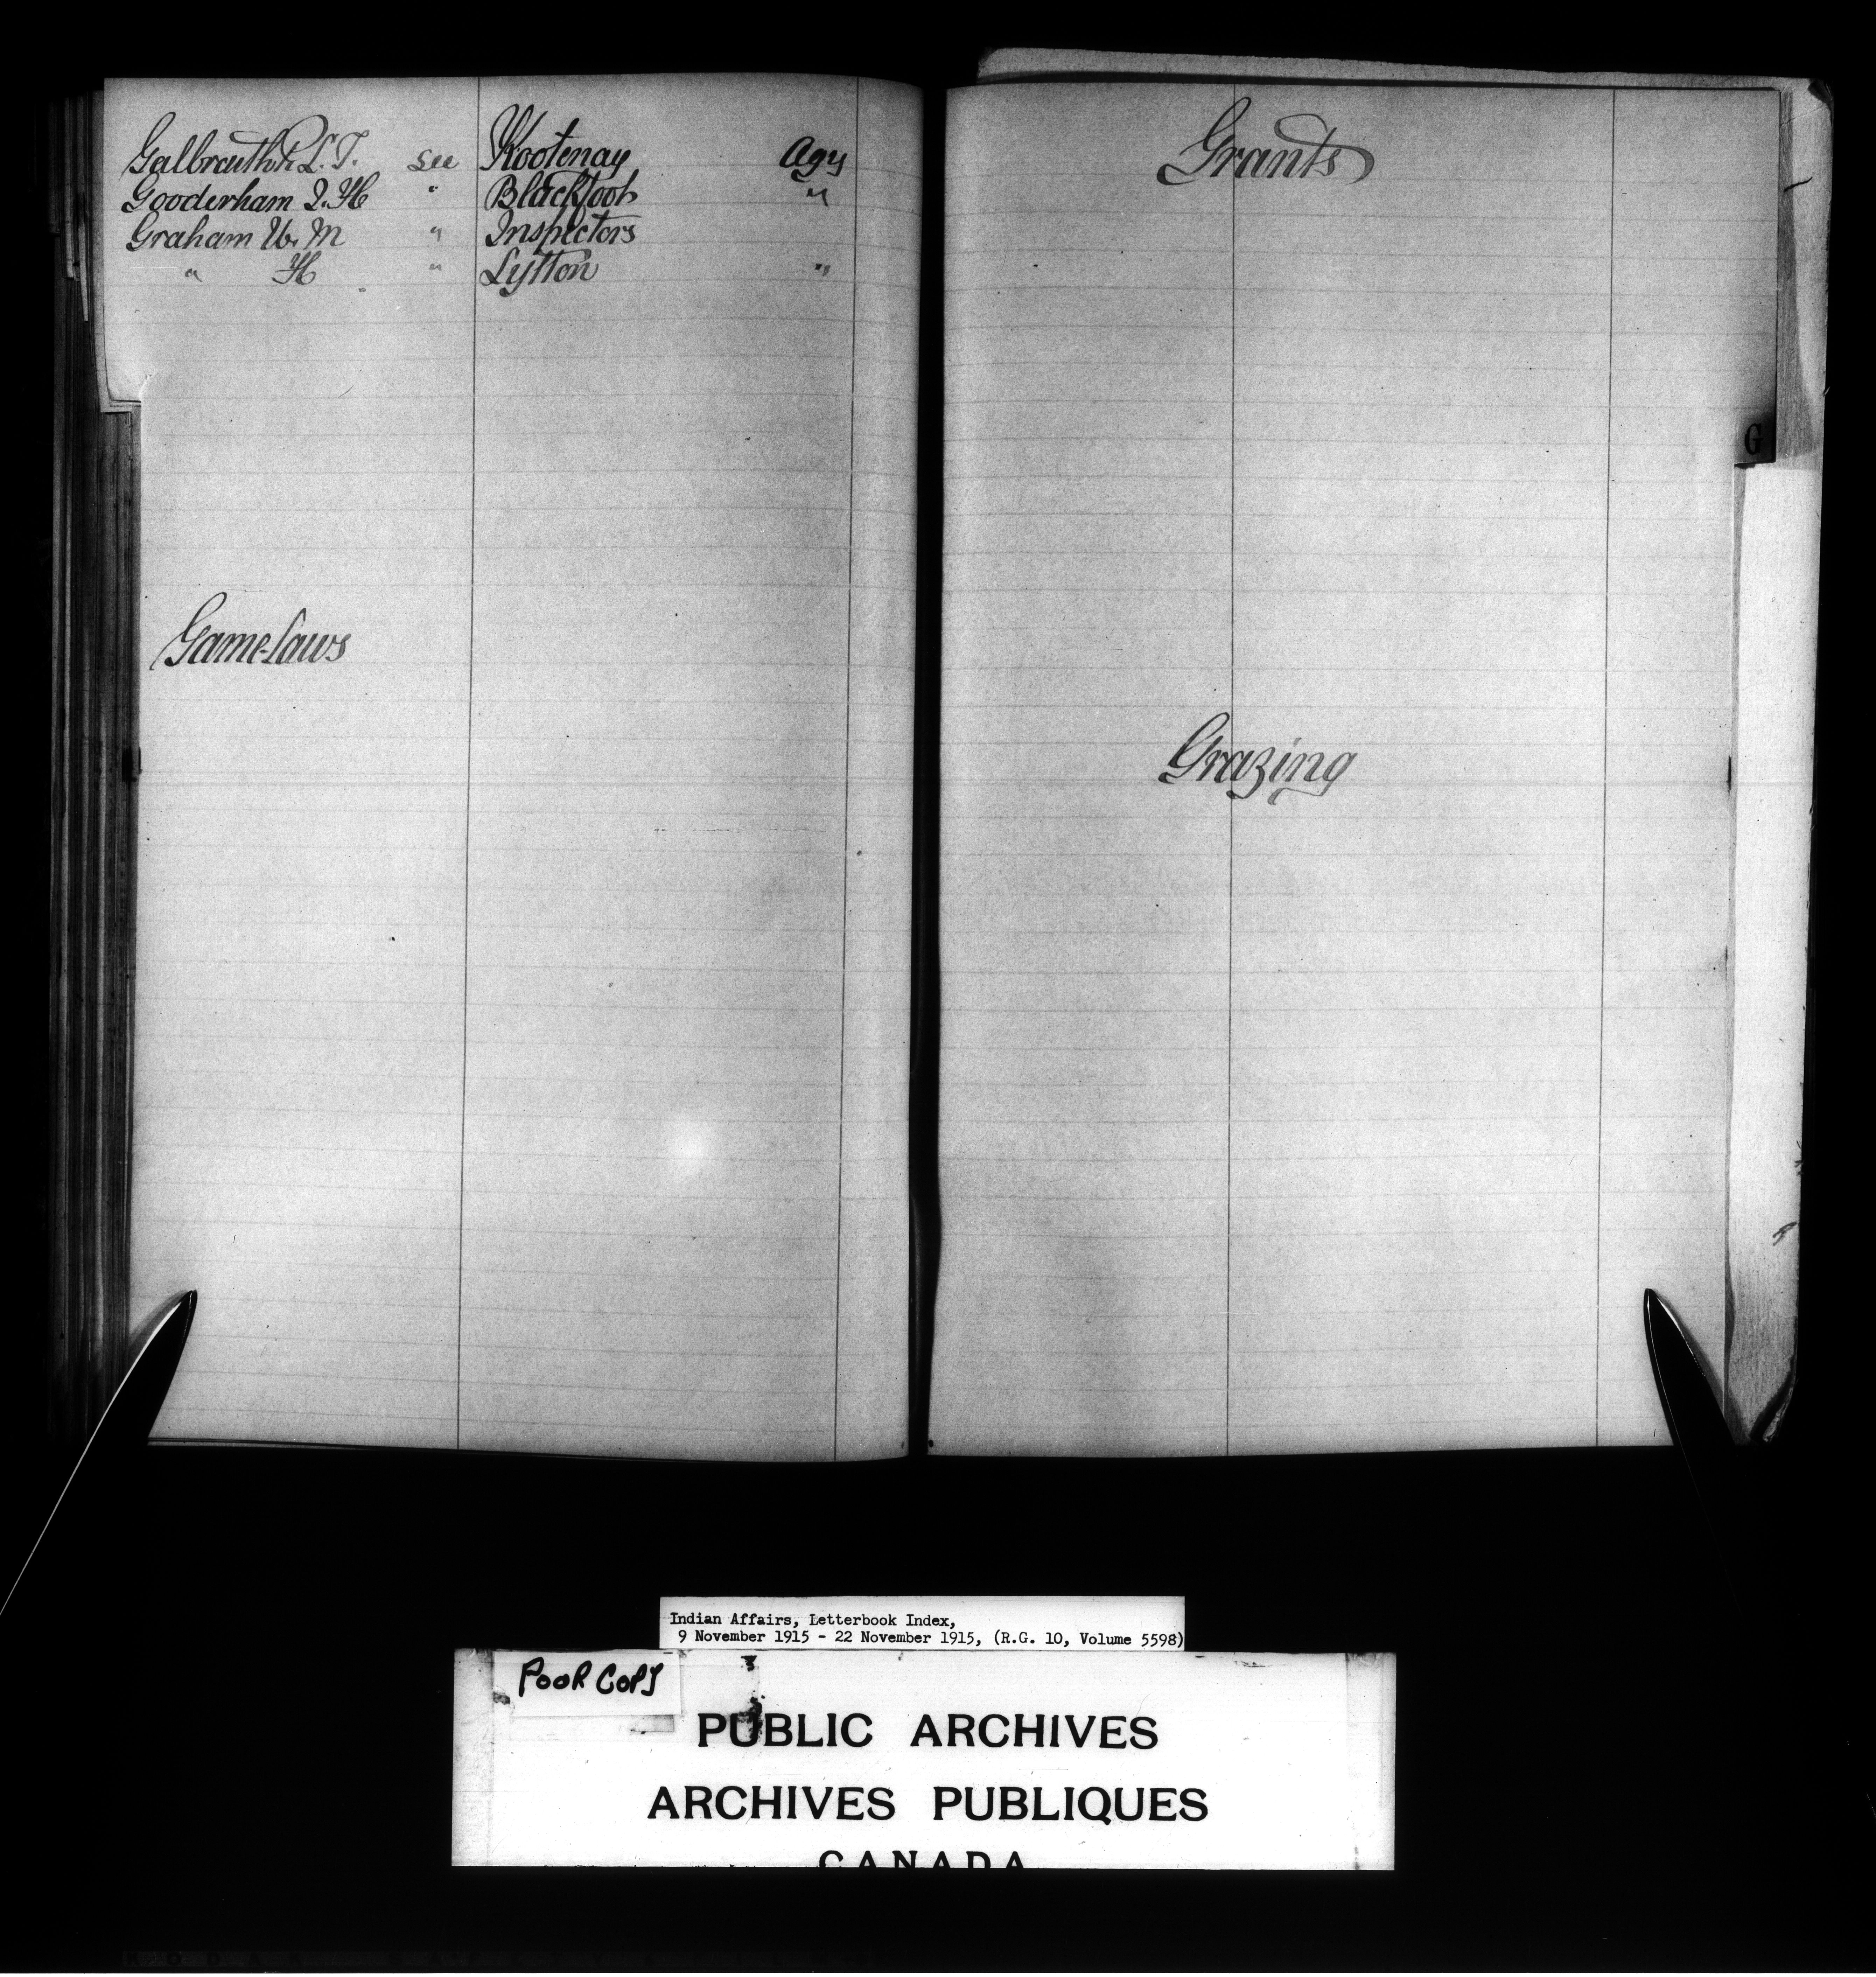 Galbraith R. L. T. see Kootenay Agy
Gooderham J. H " Blackfoot "
Graham W. M " Inspectors
" H " Lytton "
Game-Laws
Grants
G
Grazing
Indian Affairs, Letterbook Index,
9 November 1915 - 22 November 1915, (R.G. 10, Volume 5598)
POOR COPY
PUBLIC ARCHIVES
ARCHIVES PUBLIQUES
CANADA